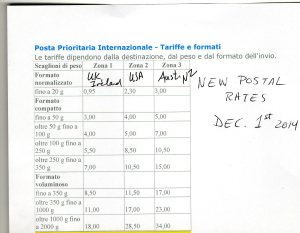 Posta Prioritaria Internazionale - Tariffe e formati
Le tariffe dipendono dalla destinazione, dal peso e dal formato dell'invio.
Scaglioni di peso Zona 1 Zona 2 Zona 3
Formato normalizzato UK Ireland USA Aust, NZ
fino a 20 g 0,95 2,30 3,00
Formato compatto
fino a 50 g 3,00 4,00 5,00
oltre 50 g fino a 100 g 4,00 5,00 7,00
oltre 100 g fino a 250 g 5,50 8,50 10,50
oltre 250 g fino a 350 g 7,00 10,50 15,00
Formato voluminoso
fino a 350 g 8,50 11,50 17,00
oltre 350 g fino a 1000 g 11,00 17,00 23,00
oltre 1000 g fino a 2000 g 18,00 28,50 34,00
NEW POSTAL
RATES
DEC. 1st 2014